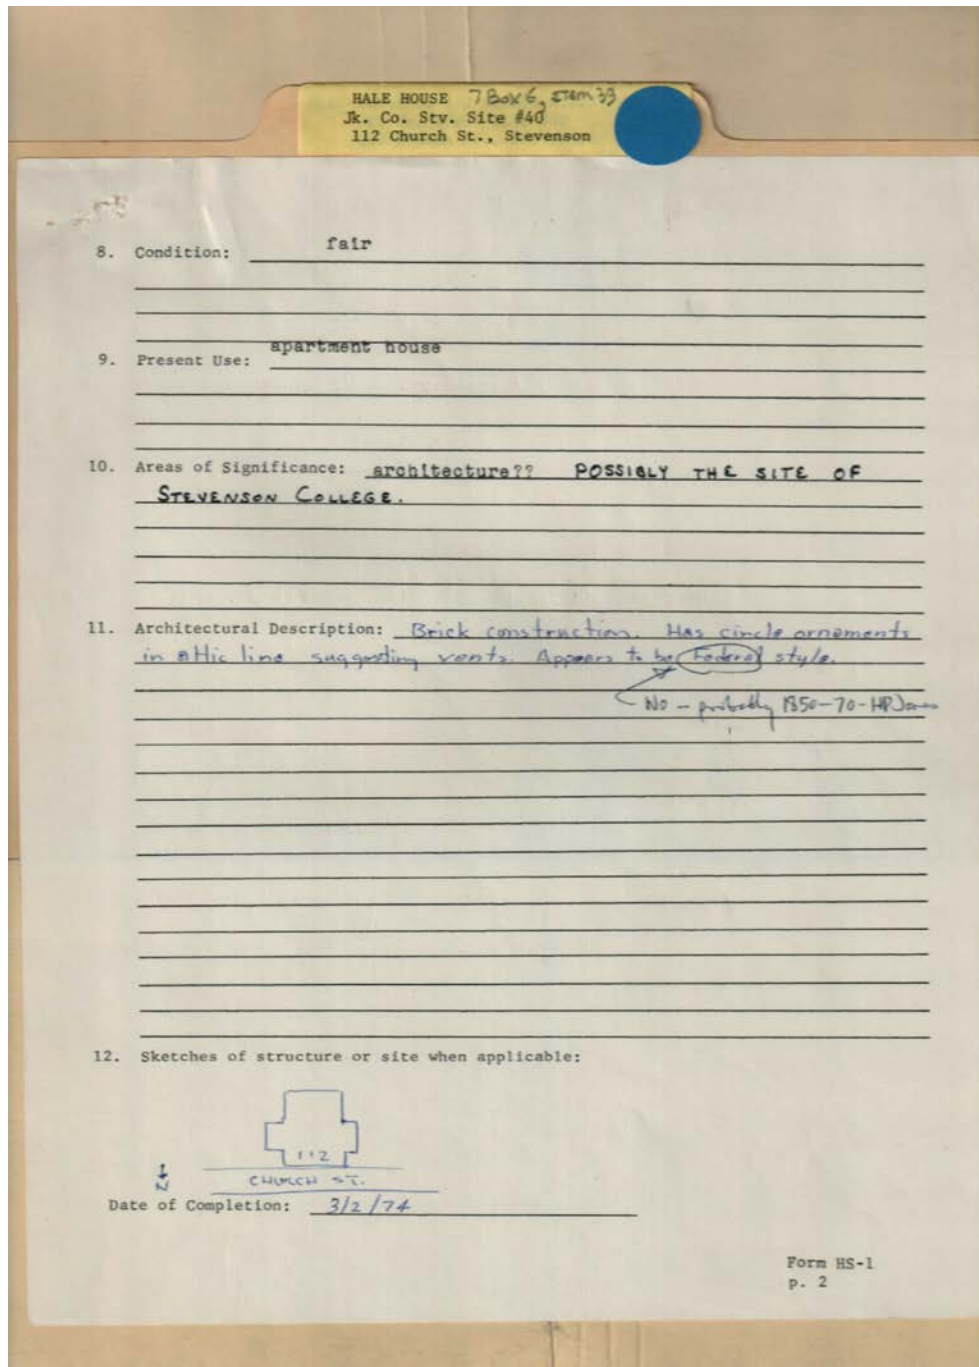 HALE HOUSE 7 Box 6, Item 39
Jk. Co. Stv. Site #40
112 Church St., Stevenson
8. Condition: fair
9. Present Use: apartment house
10. Areas of Significance: architecture?? POSSIBLY THE SITE OF
STEVENSON COLLEGE.
11. Architectural Description: Brick construction. Has circle ornaments
in attic line suggesting vents. Appears to be Federal style.
No - probably 1850-70-HP Jones
12. Sketches of structure or site when applicable:
112
N CHURCH ST.
Date of Completion: 3/2/74
Form HS-1
p. 2